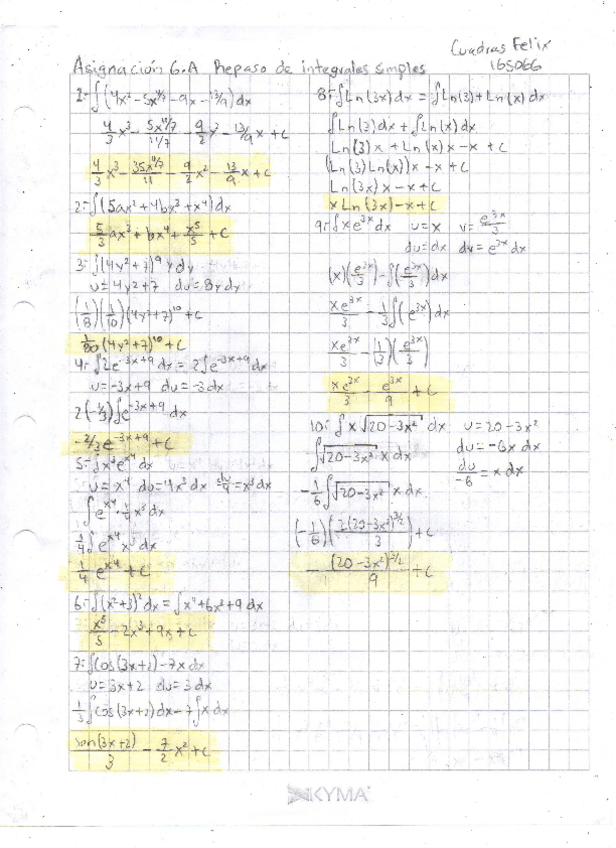 Cuadras Felix
165066
Asignación 6.A Repaso de integrales simples
1.- ∫(4x² - 5x^(4/7) - 9x - 13/9)dx
4/3 x³ - 5x^(11/7)/(11/7) - 9/2 x² - 13/9 x + C
4/3 x³ - 35x^(11/7)/11 - 9/2 x² - 13/9 x + C
2.- ∫(5ax² + 4bx³ + x⁴)dx
5/3 ax³ + bx⁴ + x⁵/5 + C
3.- ∫(4y² + 7)⁹ y dy
u = 4y² + 7 du = 8y dy
(1/8)(1/10)(4y² + 7)¹⁰ + C
1/80 (4y² + 7)¹⁰ + C
4.- ∫2e^(-3x+9) dx = 2∫e^(-3x+9) dx
u = -3x + 9 du = -3dx
2(-1/3)∫e^(-3x+9) dx
-2/3 e^(-3x+9) + C
5.- ∫x³e^(x⁴) dx
u = x⁴ du = 4x³ dx du/4 = x³ dx
∫e^(x⁴) · 1/4 x³ dx
1/4 ∫e^(x⁴) x³ dx
1/4 e^(x⁴) + C
6.- ∫(x² + 3)² dx = ∫x⁴ + 6x² + 9 dx
x⁵/5 - 2x³ + 9x + C
7.- ∫Cos(3x+2) - 7x dx
u = 3x + 2 du = 3 dx
1/3 ∫cos(3x+2) dx - 7∫x dx
sen(3x+2)/3 - 7/2 x² + C
8.- ∫Ln(3x) dx = ∫Ln(3) + Ln(x) dx
∫Ln(3) dx + ∫Ln(x) dx
Ln(3) x + Ln(x) x - x + C
(Ln(3) Ln(x)) x - x + C
Ln(3x) x - x + C
x Ln(3x) - x + C
9.- ∫xe^(3x) dx u = x v = e^(3x)/3
du = dx dv = e^(3x) dx
(x)(e^(3x)/3) - ∫(e^(3x)/3) dx
xe^(3x)/3 - 1/3 ∫(e^(3x)) dx
xe^(3x)/3 - (1/3)(e^(3x)/3)
xe^(3x)/3 - e^(3x)/9 + C
10.- ∫x √(20 - 3x²) dx u = 20 - 3x²
∫√(20 - 3x²) x dx du = -6x dx
du/-6 = x dx
-1/6 ∫√(20 - 3x²) x dx
(-1/6)(2(20 - 3x²)^(3/2)/3) + C
- (20 - 3x²)^(3/2)/9 + C
KYMA